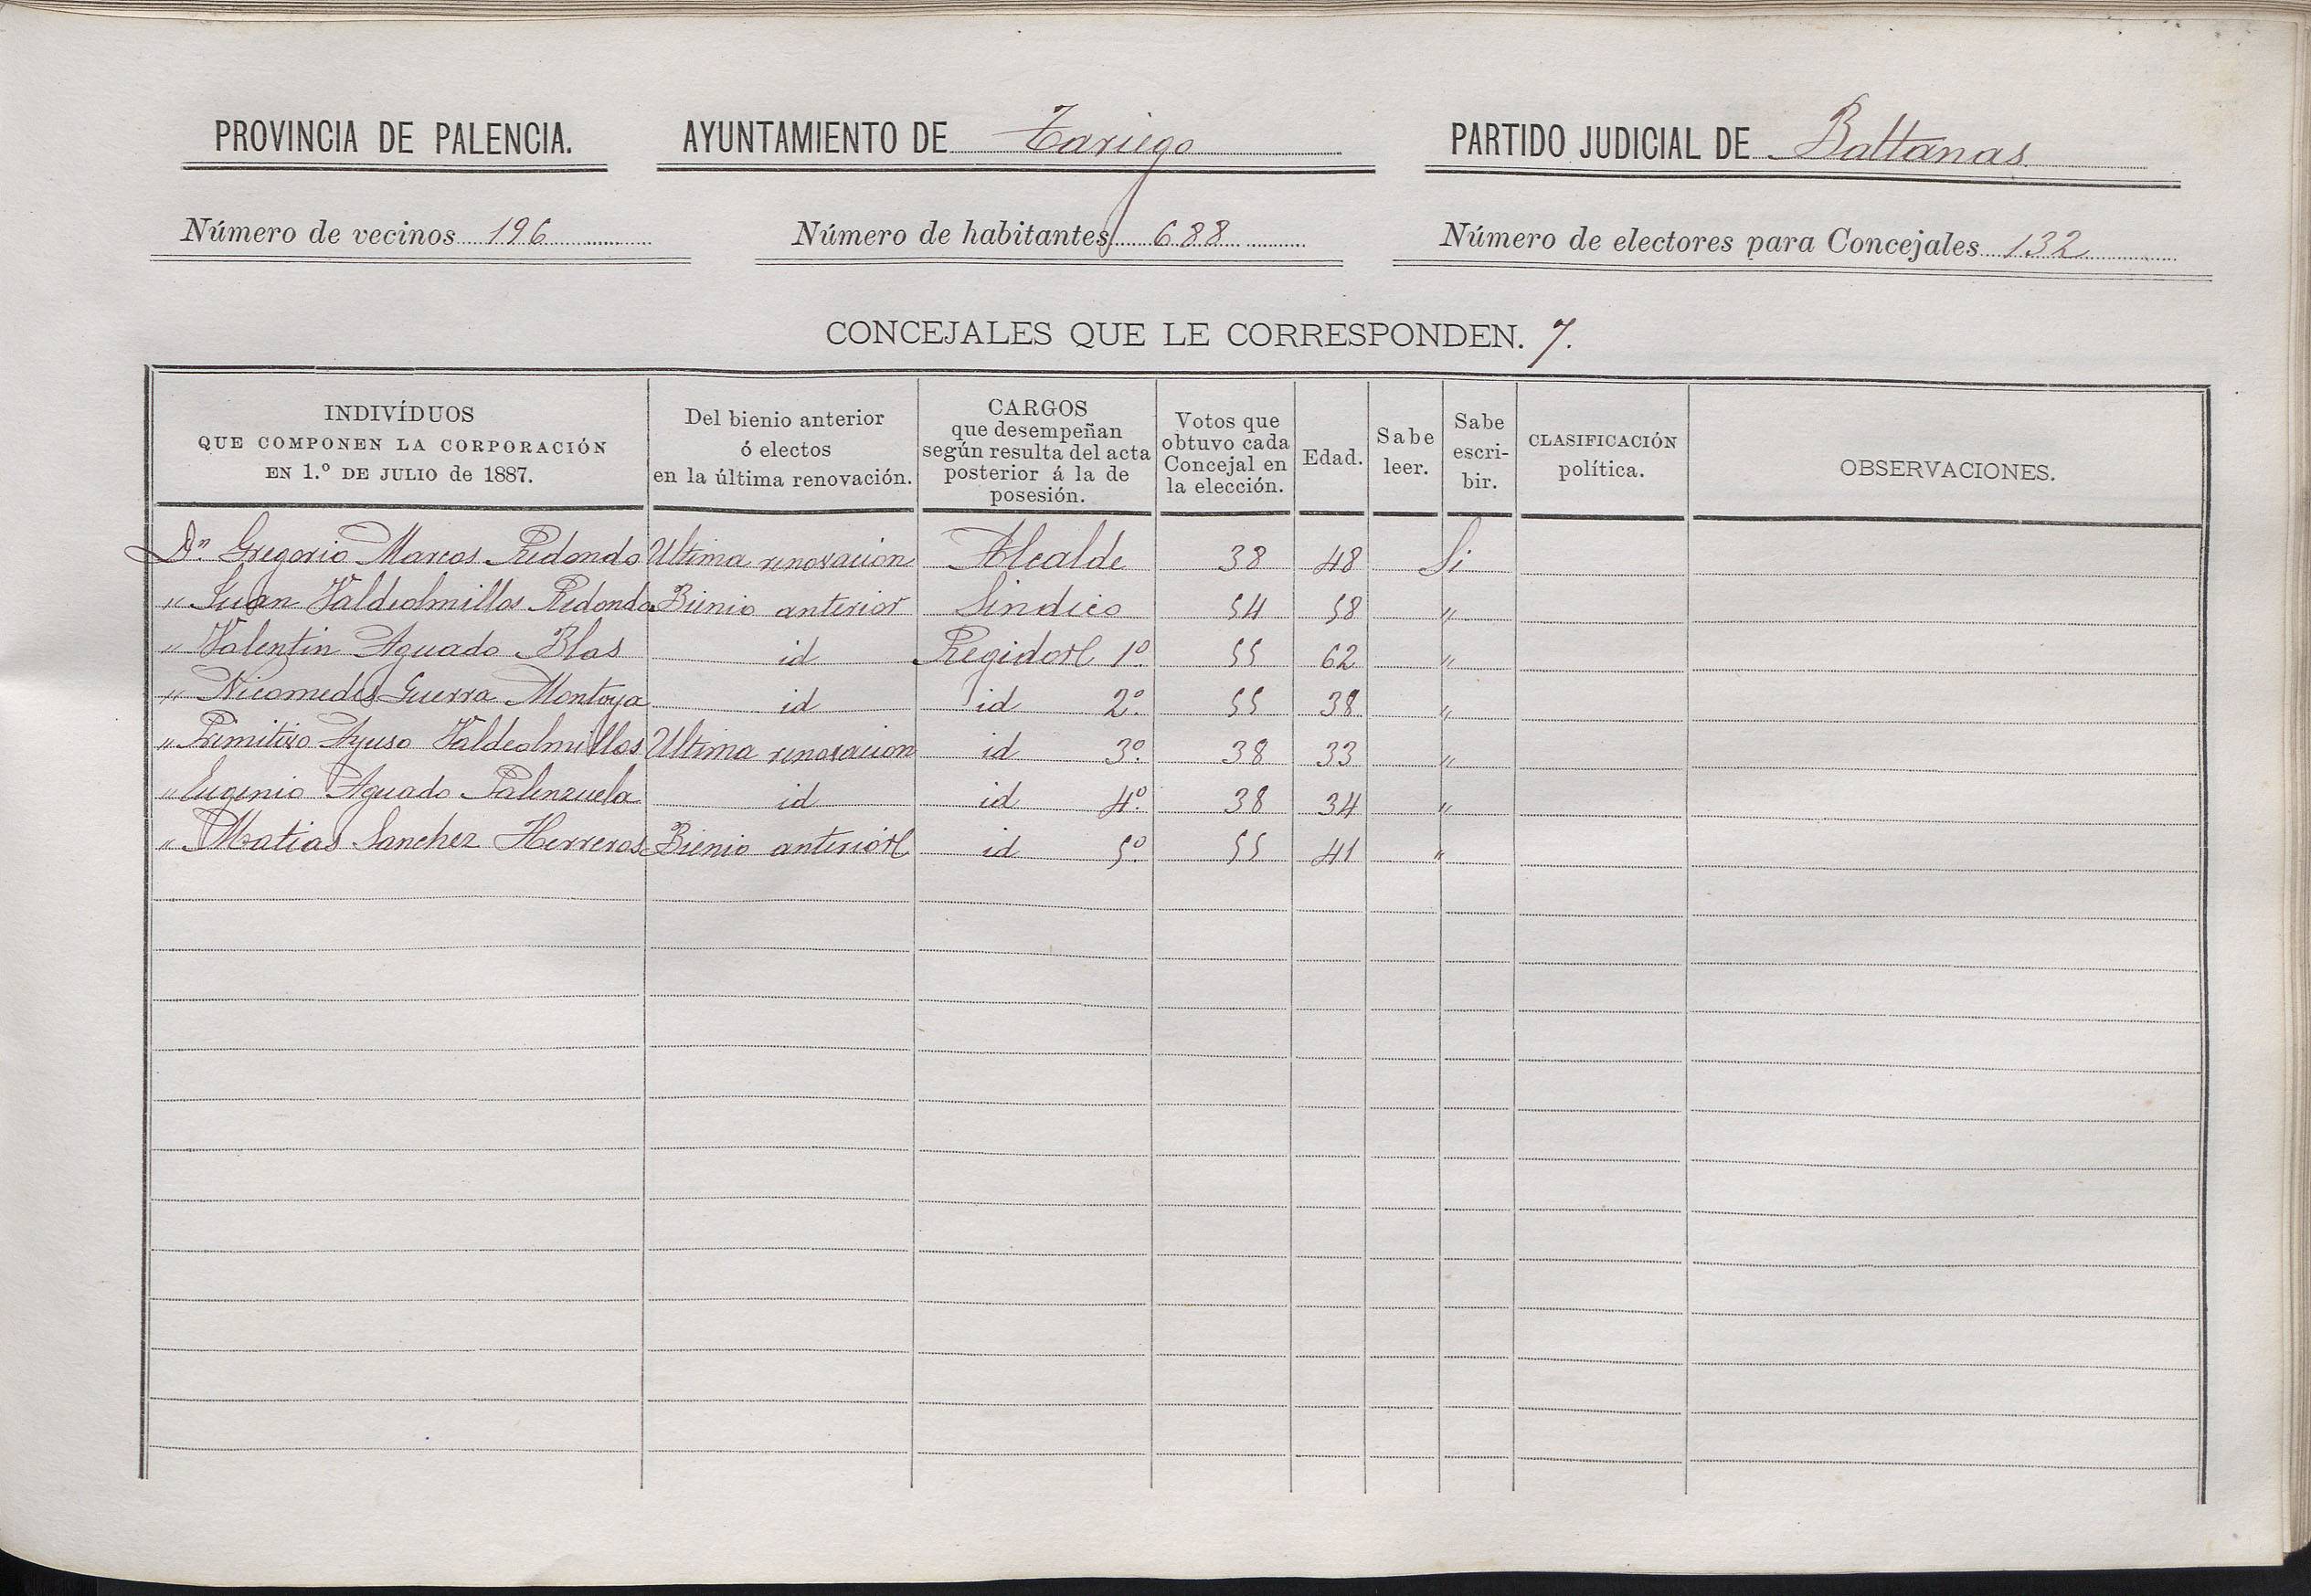 PROVINCIA DE PALENCIA. AYUNTAMIENTO DE Tariego PARTIDO JUDICIAL DE Baltanas
Número de vecinos 196 Número de habitantes 688 Número de electores para Concejales 132
CONCEJALES QUE LE CORRESPONDEN. 7.
INDIVÍDUOS
QUE COMPONEN LA CORPORACIÓN
EN 1.º DE JULIO de 1887.
Del bienio anterior
ó electos
en la última renovación.
CARGOS
que desempeñan
según resulta del acta
posterior á la de
posesión.
Votos que
obtuvo cada
Concejal en
la elección.
Edad.
Sabe
leer.
Sabe
escri-
bir.
CLASIFICACIÓN
política.
OBSERVACIONES.
Dn Gregorio Marcos Redondo Ultima renovacion Alcalde 38 48 Si
" Juan Valdeolmillos Redondo Bienio anterior Sindico 54 58 "
" Valentin Aguado Blas id Regidor 1º 55 62 "
" Nicomedes Guerra Montoya id id 2º 55 38 "
" Primitivo Ayuso Valdeolmillos Ultima renovacion id 3º 38 33 "
" Eugenio Aguado Palenzuela id id 4º 38 34 "
" Matias Sanchez Herreros Bienio anterior id 5º 55 41 "